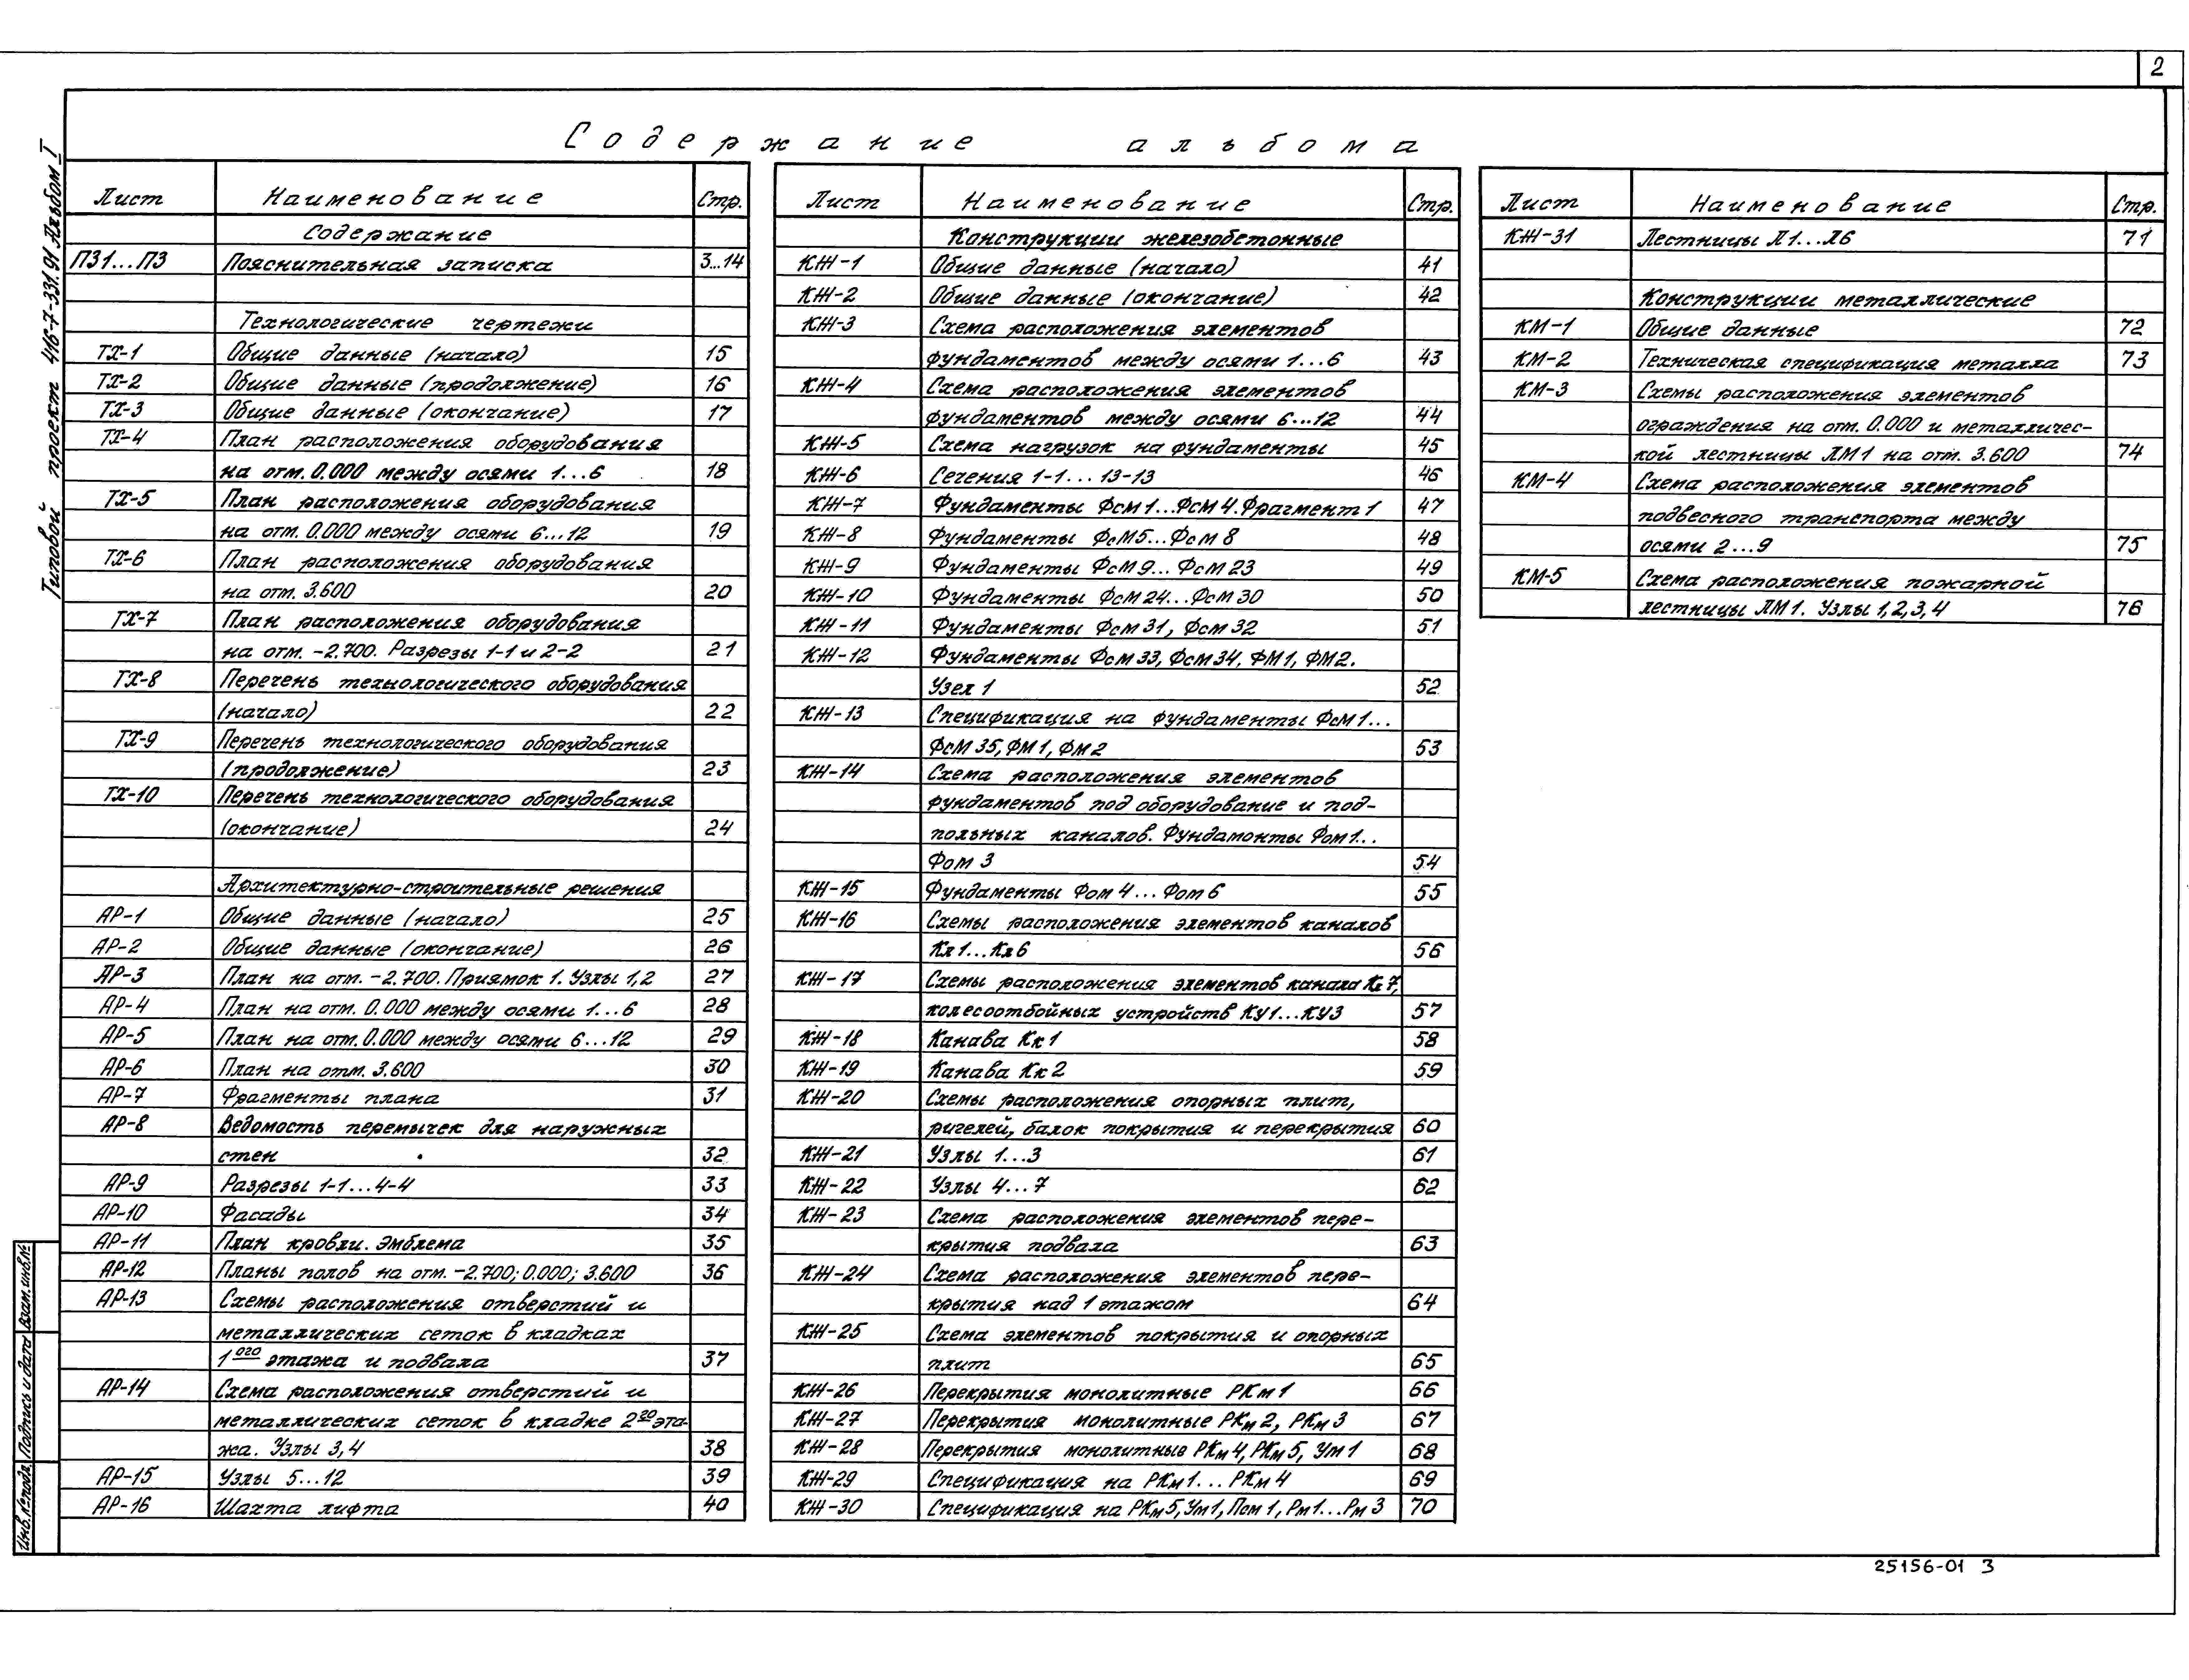 2
Содержание альбома
Типовой проект 416-7-331.91 Альбом I
Лист Наименование Стр.
Содержание
ПЗ1...ПЗ Пояснительная записка 3...14
Технологические чертежи
ТХ-1 Общие данные (начало) 15
ТХ-2 Общие данные (продолжение) 16
ТХ-3 Общие данные (окончание) 17
ТХ-4 План расположения оборудования
на отм. 0.000 между осями 1...6 18
ТХ-5 План расположения оборудования
на отм. 0.000 между осями 6...12 19
ТХ-6 План расположения оборудования
на отм. 3.600 20
ТХ-7 План расположения оборудования
на отм. -2.700. Разрезы 1-1 и 2-2 21
ТХ-8 Перечень технологического оборудования
(начало) 22
ТХ-9 Перечень технологического оборудования
(продолжение) 23
ТХ-10 Перечень технологического оборудования
(окончание) 24
Архитектурно-строительные решения
АР-1 Общие данные (начало) 25
АР-2 Общие данные (окончание) 26
АР-3 План на отм. -2.700. Приямок 1. Узлы 1,2 27
АР-4 План на отм. 0.000 между осями 1...6 28
АР-5 План на отм. 0.000 между осями 6...12 29
АР-6 План на отм. 3.600 30
АР-7 Фрагменты плана 31
АР-8 Ведомость перемычек для наружных
стен 32
АР-9 Разрезы 1-1...4-4 33
АР-10 Фасады 34
АР-11 План кровли. Эмблема 35
АР-12 Планы полов на отм. -2.700; 0.000; 3.600 36
АР-13 Схемы расположения отверстий и
металлических сеток в кладках
1ого этажа и подвала 37
АР-14 Схема расположения отверстий и
металлических сеток в кладке 2го эта-
жа. Узлы 3,4 38
АР-15 Узлы 5...12 39
АР-16 Шахта лифта 40
Лист Наименование Стр.
Конструкции железобетонные
КЖ-1 Общие данные (начало) 41
КЖ-2 Общие данные (окончание) 42
КЖ-3 Схема расположения элементов
фундаментов между осями 1...6 43
КЖ-4 Схема расположения элементов
фундаментов между осями 6...12 44
КЖ-5 Схема нагрузок на фундаменты 45
КЖ-6 Сечения 1-1...13-13 46
КЖ-7 Фундаменты ФсМ1...ФсМ4. Фрагмент 1 47
КЖ-8 Фундаменты ФсМ5...ФсМ8 48
КЖ-9 Фундаменты ФсМ9...ФсМ23 49
КЖ-10 Фундаменты ФсМ24...ФсМ30 50
КЖ-11 Фундаменты ФсМ31, ФсМ32 51
КЖ-12 Фундаменты ФсМ33, ФсМ34. ФМ1, ФМ2.
Узел 1 52
КЖ-13 Спецификация на фундаменты ФсМ1...
ФсМ35, ФМ1, ФМ2 53
КЖ-14 Схема расположения элементов
фундаментов под оборудование и под-
польных каналов. Фундамонты Фом1...
Фом3 54
КЖ-15 Фундаменты Фом4...Фом6 55
КЖ-16 Схемы расположения элементов каналов
Кл1...Кл6 56
КЖ-17 Схемы расположения элементов канала Кл7,
колесоотбойных устройств КУ1...КУ3 57
КЖ-18 Канава Кк1 58
КЖ-19 Канава Кк2 59
КЖ-20 Схемы расположения опорных плит,
ригелей, балок покрытия и перекрытия 60
КЖ-21 Узлы 1...3 61
КЖ-22 Узлы 4...7 62
КЖ-23 Схема расположения элементов пере-
крытия подвала 63
КЖ-24 Схема расположения элементов пере-
крытия над 1 этажом 64
КЖ-25 Схема элементов покрытия и опорных
плит 65
КЖ-26 Перекрытия монолитные РКм1 66
КЖ-27 Перекрытия монолитные РКм2, РКм3 67
КЖ-28 Перекрытия монолитные РКм4, РКм5, Ум1 68
КЖ-29 Спецификация на РКм1...РКм4 69
КЖ-30 Спецификация на РКм5, Ум1, Псм1, Рм1...Рм3 70
Лист Наименование Стр.
КЖ-31 Лестницы Л1...Л6 71
Конструкции металлические
КМ-1 Общие данные 72
КМ-2 Техническая спецификация металла 73
КМ-3 Схемы расположения элементов
ограждения на отм. 0.000 и металличес-
кой лестницы ЛМ1 на отм. 3.600 74
КМ-4 Схема расположения элементов
подвесного транспорта между
осями 2...9 75
КМ-5 Схема расположения пожарной
лестницы ЛМ1. Узлы 1,2,3,4 76
Инв.№подл. Подпись и дата Взам.инв.№
25156-01 3